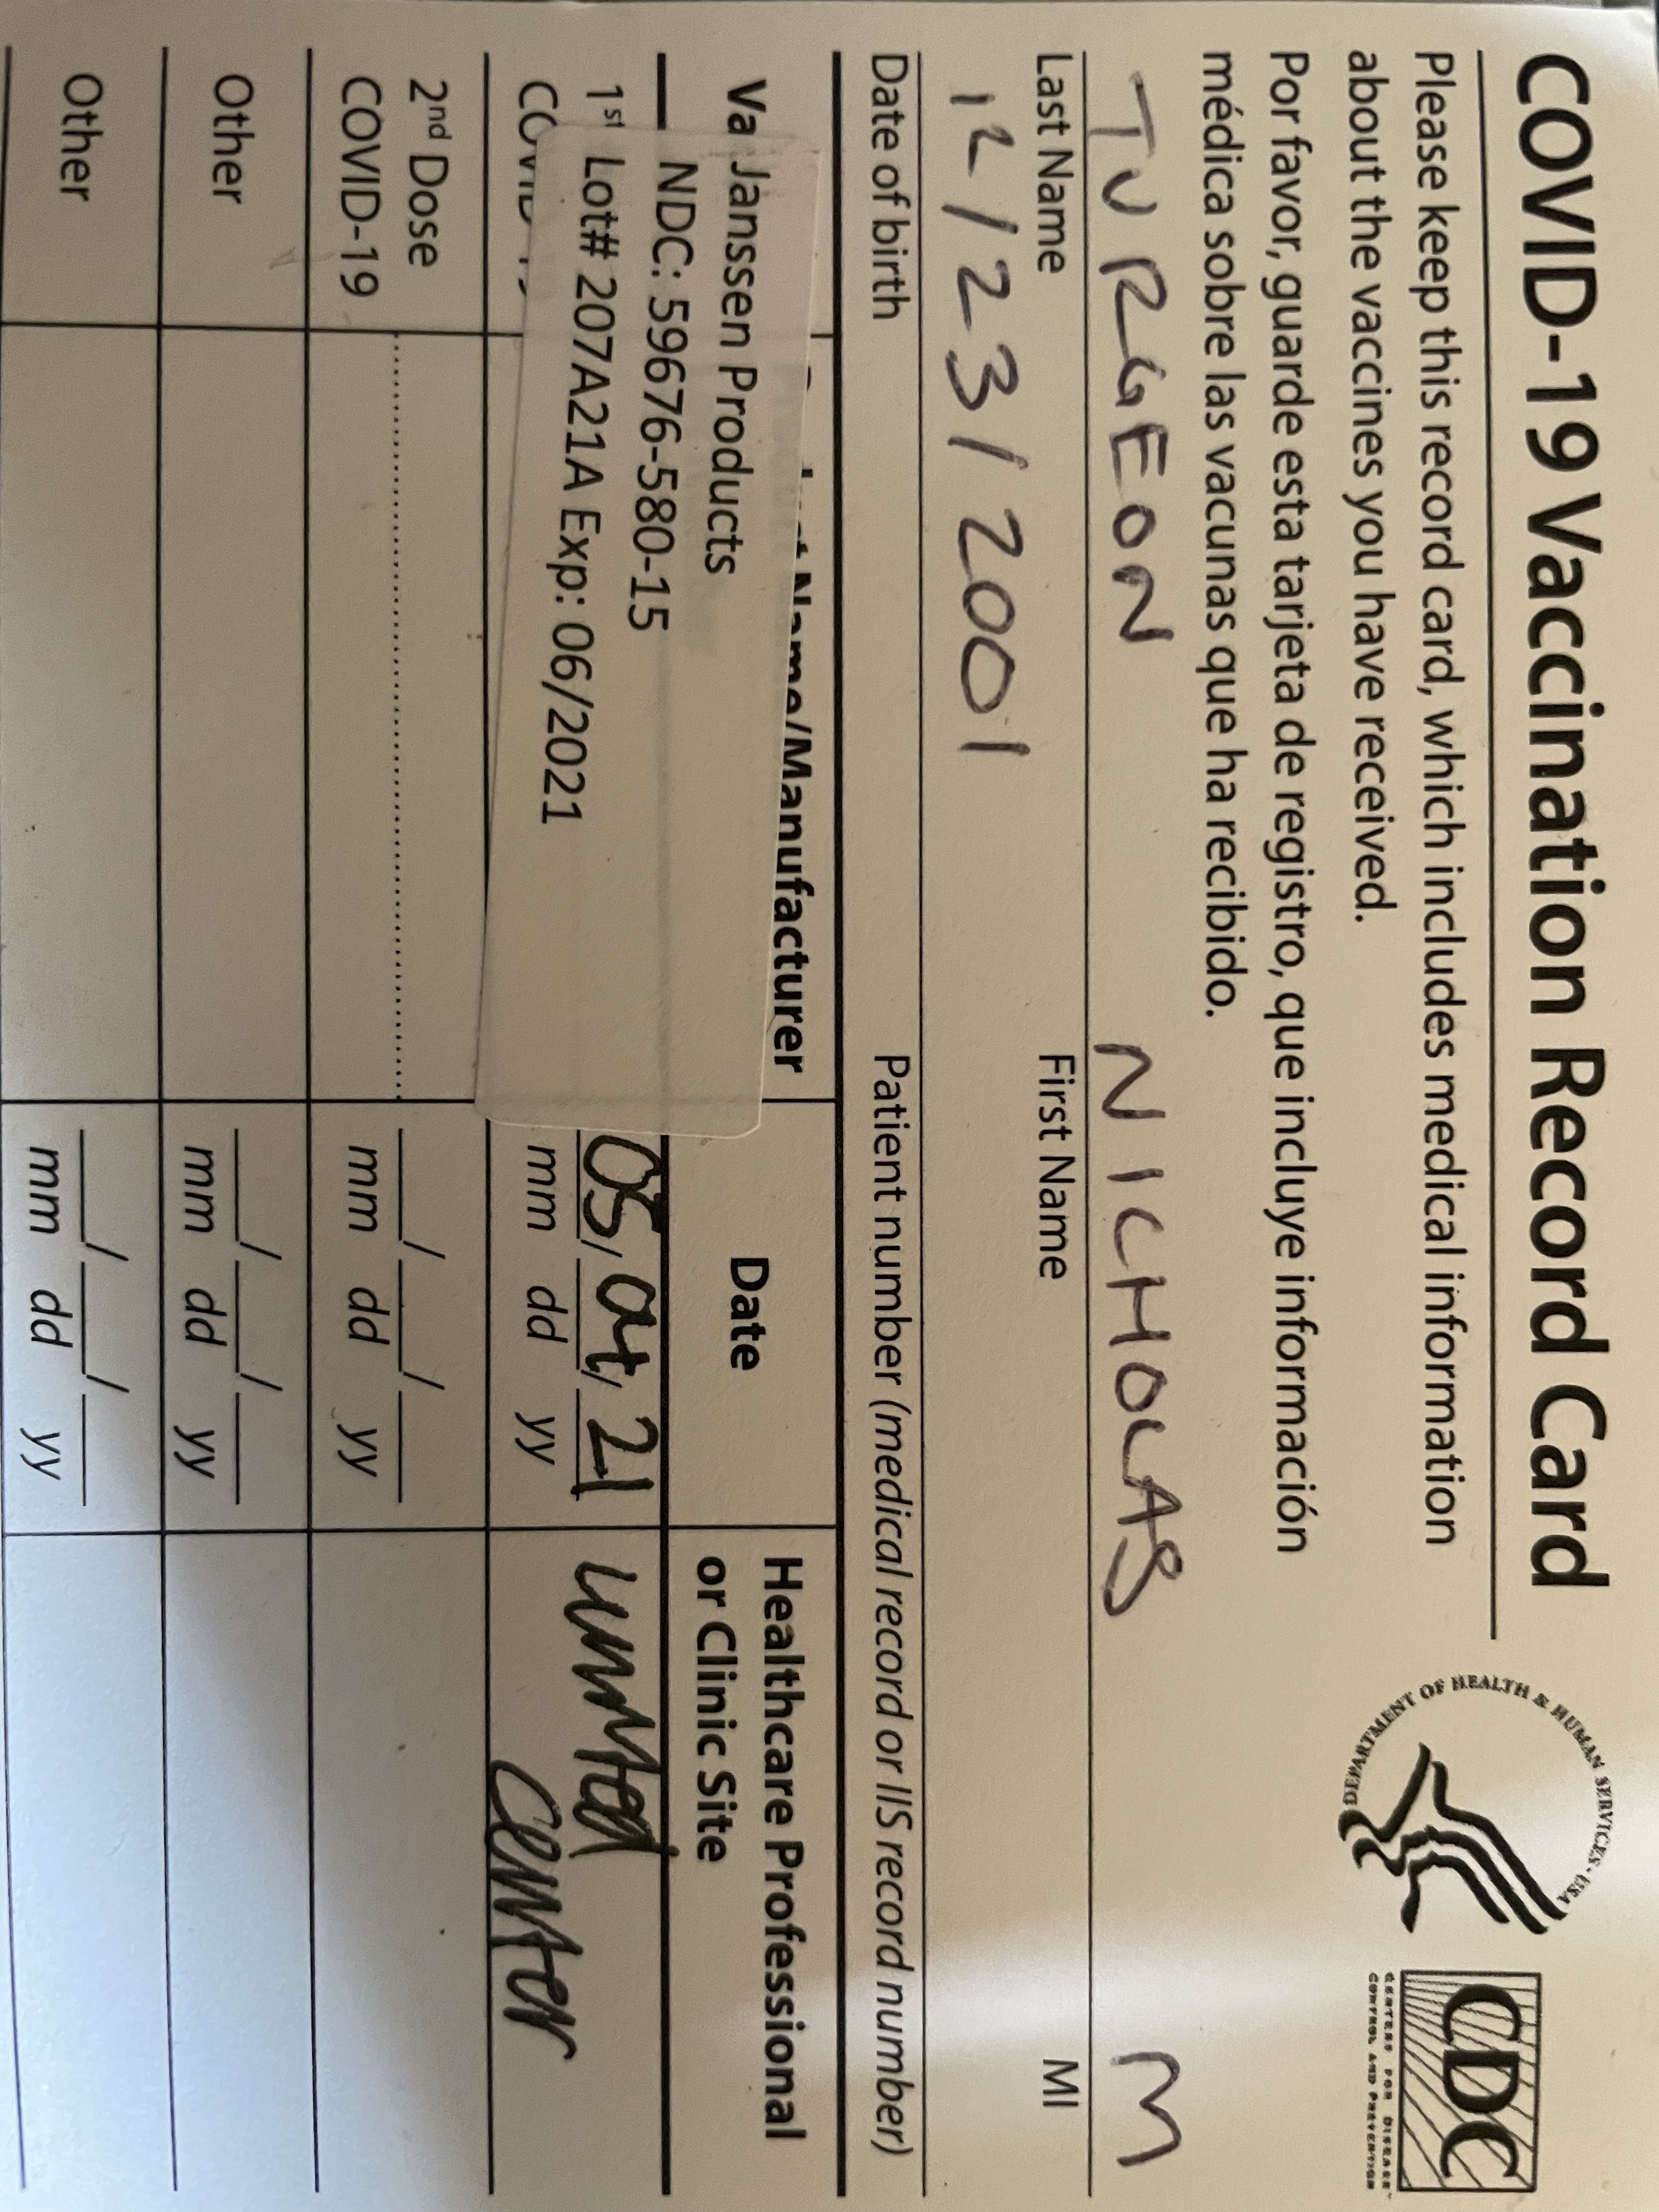 COVID-19 Vaccination Record Card
Please keep this record card, which includes medical information
about the vaccines you have received.
Por favor, guarde esta tarjeta de registro, que incluye información
médica sobre las vacunas que ha recibido.
DEPARTMENT OF HEALTH & HUMAN SERVICES · USA
CDC
CENTERS FOR DISEASE
CONTROL AND PREVENTION
TURGEON NICHOLAS M
Last Name First Name MI
12/23/2001
Date of birth Patient number (medical record or IIS record number)
Va Name/Manufacturer Date Healthcare Professional
or Clinic Site
Janssen Products
NDC: 59676-580-15
Lot# 207A21A Exp: 06/2021
1st 21 United
COVID-19 mm dd yy Center
2nd Dose
COVID-19 mm dd yy
Other mm dd yy
Other mm dd yy